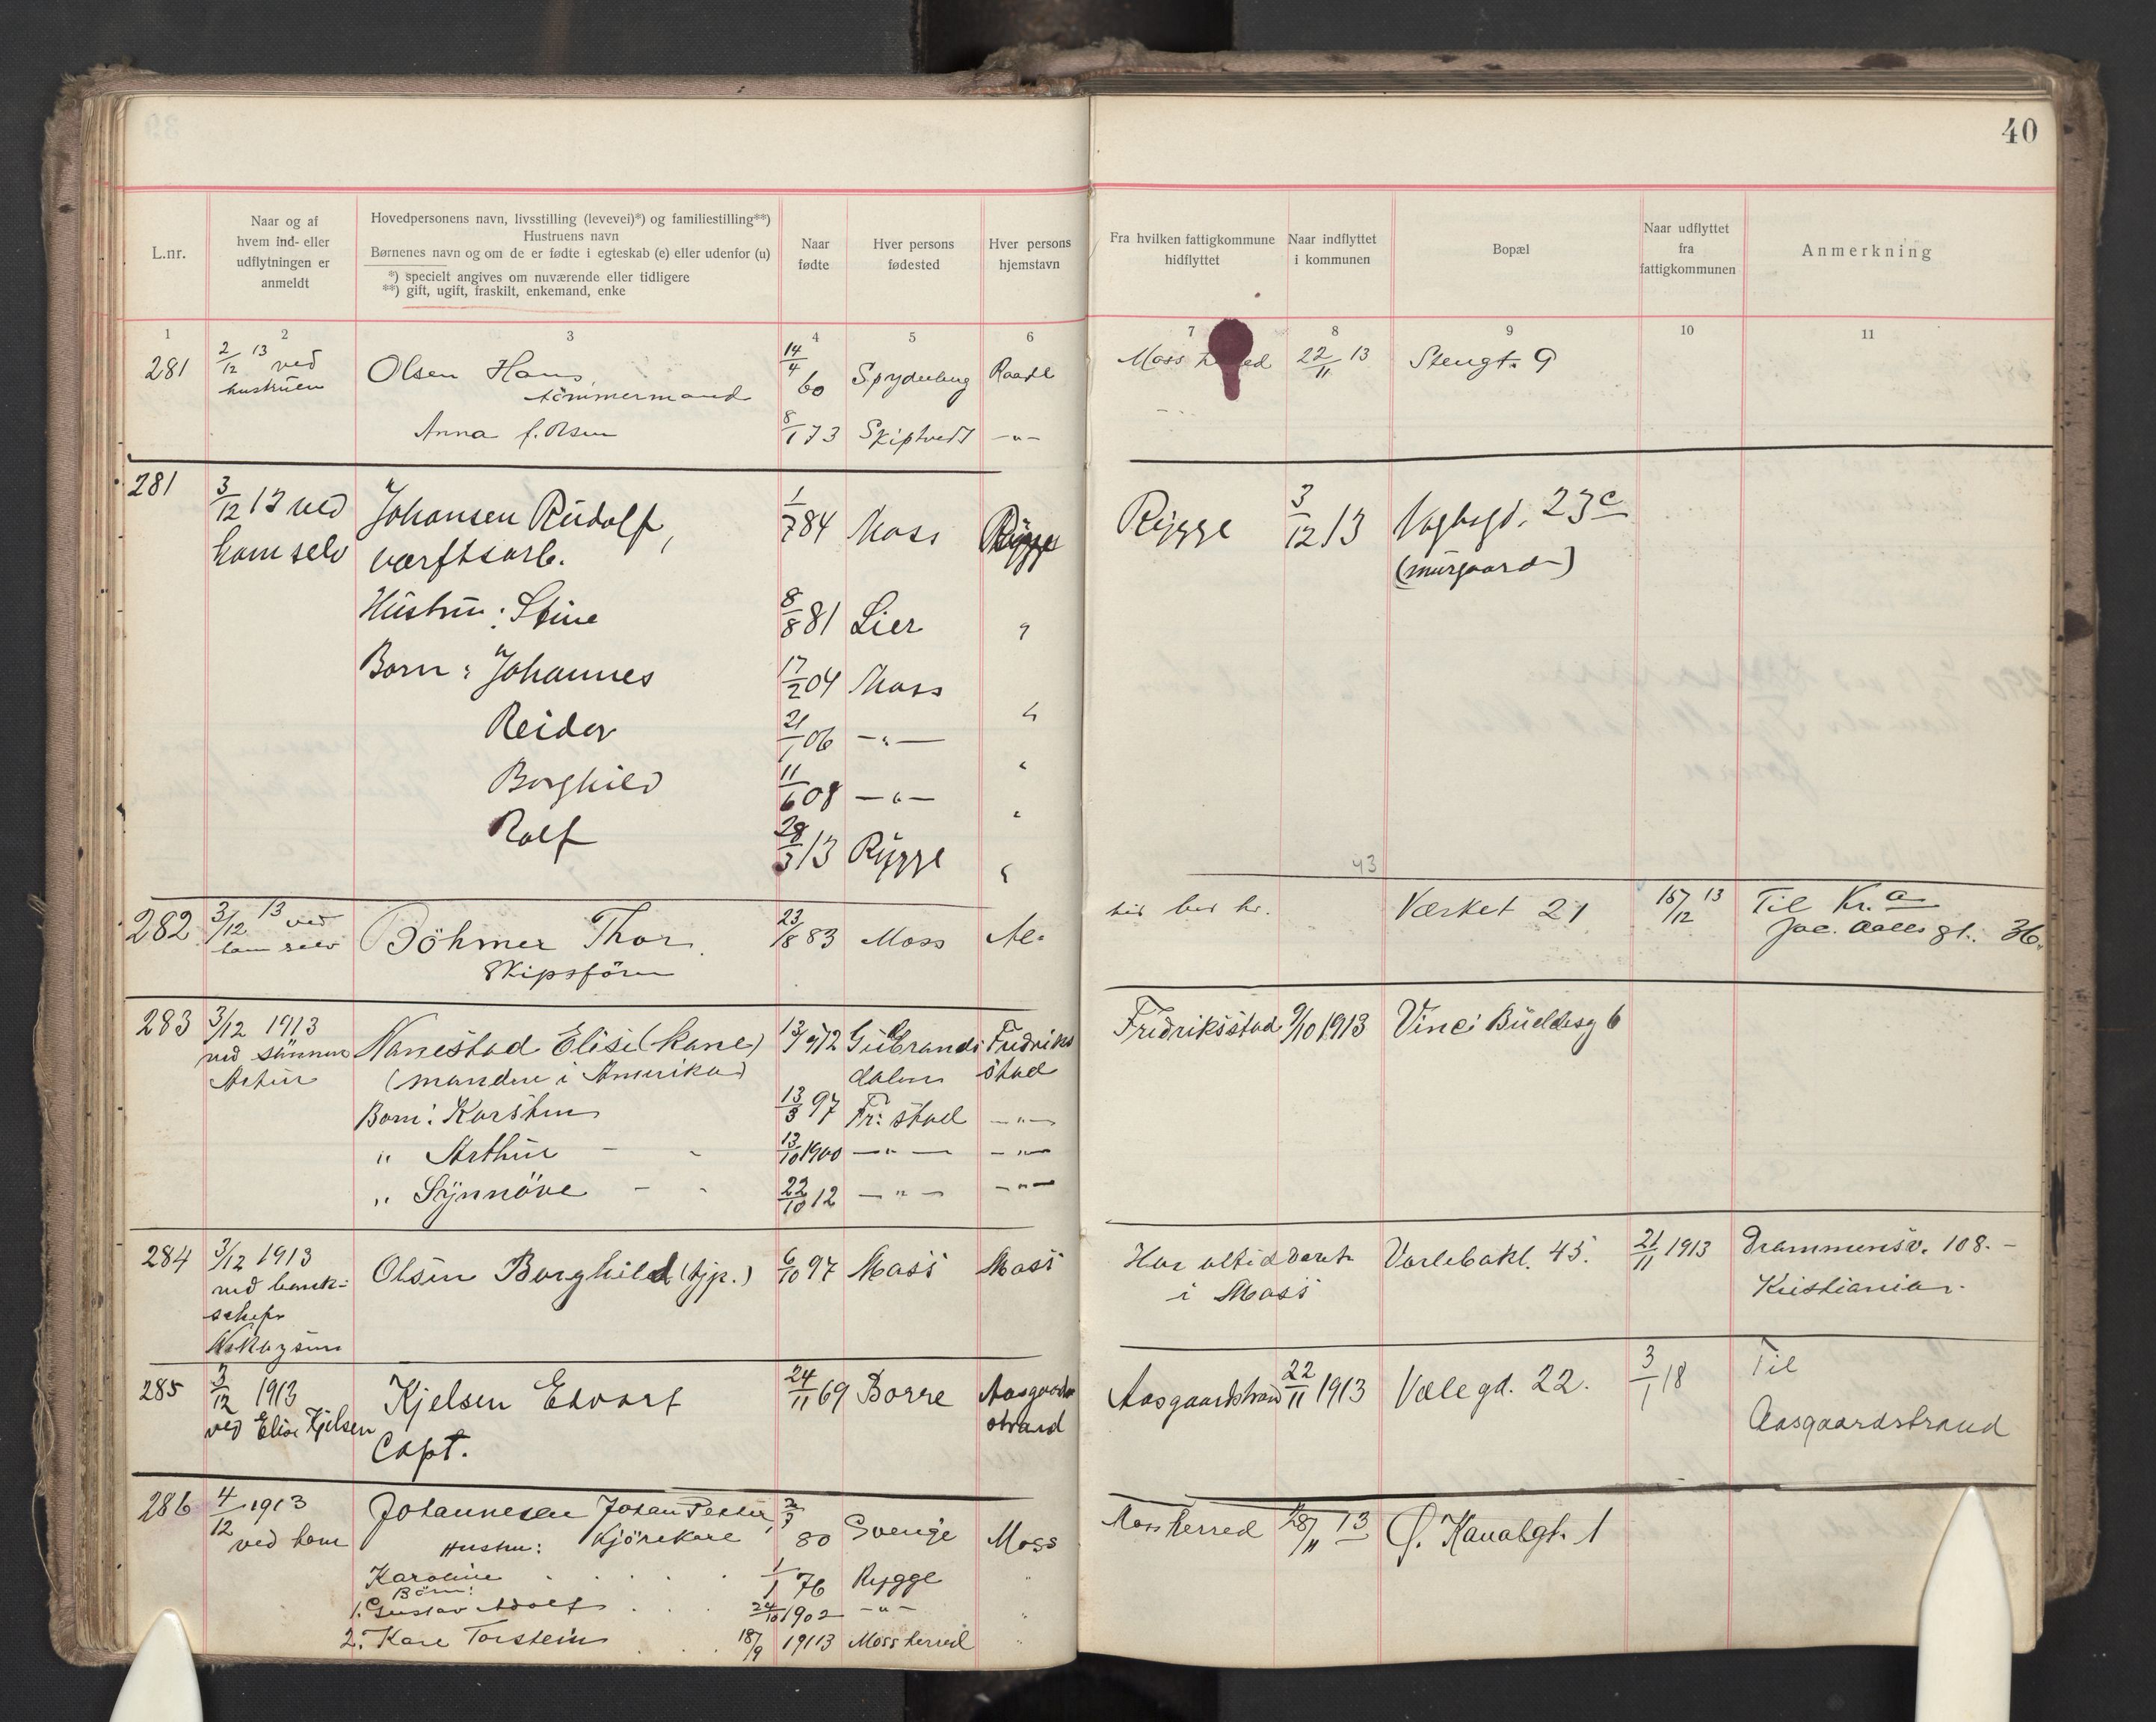 40
L.nr.
Naar og af
hvem ind- eller
udflytningen er
anmeldt
Hovedpersonens navn, livsstilling (levevei)*) og familiestilling**)
Hustruens navn
Børnenes navn og om de er fødte i egteskab (e) eller udenfor (u)
*) specielt angives om nuværende eller tidligere
**) gift, ugift, fraskilt, enkemand, enke
Naar
fødte
Hver persons
fødested
Hver persons
hjemstavn
Fra hvilken fattigkommune
hidflyttet
Naar indflyttet
i kommunen
Bopæl
Naar udflyttet
fra
fattigkommunen
Anmerkning
1 2 3 4 5 6 7 8 9 10 11
281 2/12 13 ved Olsen Hans 14/4 60 Spydeberg Raade Moss herred 22/11 13 Stengt. 9
hustruen tömmermand
Anna f. Olsen 8/1 73 Skiptvedt -"-
281 3/12 13 ved Johansen Rudolf, 1/7 84 Moss Rygge Rygge 3/12 13 Vogtsgd. 23c
ham selv værftsarb. (murgaard)
Hustru: Stine 8/8 81 Lier "
Born: Johannes 17/2 04 Moss "
Reidar 21/1 06 -"- "
Borghild 11/6 08 -"- "
Rolf 28/3 13 Rygge "
43
282 3/12 13 ved Böhmer Thor. 23/8 83 Moss Værket 21 15/12 13 Til Kr.a
ham selv Skipsförer Jac. Aalls gt. 36.
283 3/12 1913 Nanestad Elise (kone) Gulbrands Fredriks Fredriksstad 9/10 1913 Vinci Buddesg 6
ved sønnen (manden i Amerika) dalen stad
Artur
Born: Karsten 13/3 97 Fr: stad -"-
" Arthur - - 13/10 1900 -"- -"-
" Synnöve - - 22/10 12 -"- -"-
284 3/12 1913 Olsen Borghild (tjp.) 6/10 97 Moss Moss Har altid været Varlebakk. 45. 21/11 1913 Drammensv. 108. -
ved bank- i Moss Kristiania.
schefr
285 3/12 1913 Kjelsen Edvart 24/11 69 Borre Aasgaards Aasgaardstrand 22/11 1913 Vale gd. 22. 3/1 18 Til
ved Elise Kjelsen strand Aasgaardstrand
Capt.
286 4/12 1913 Johannesen Johan Petter, 2/3 80 Sverige Moss Moss herred 28/11 13 Ø. Kanalgt. 1
ved ham Hustru: Kjörekare
Karoline 1/1 76 Rygge "
Börn:
1. Gustav Adolf 24/10 1902 -"- "
2. Kare Torstein 18/9 1913 Moss herred "